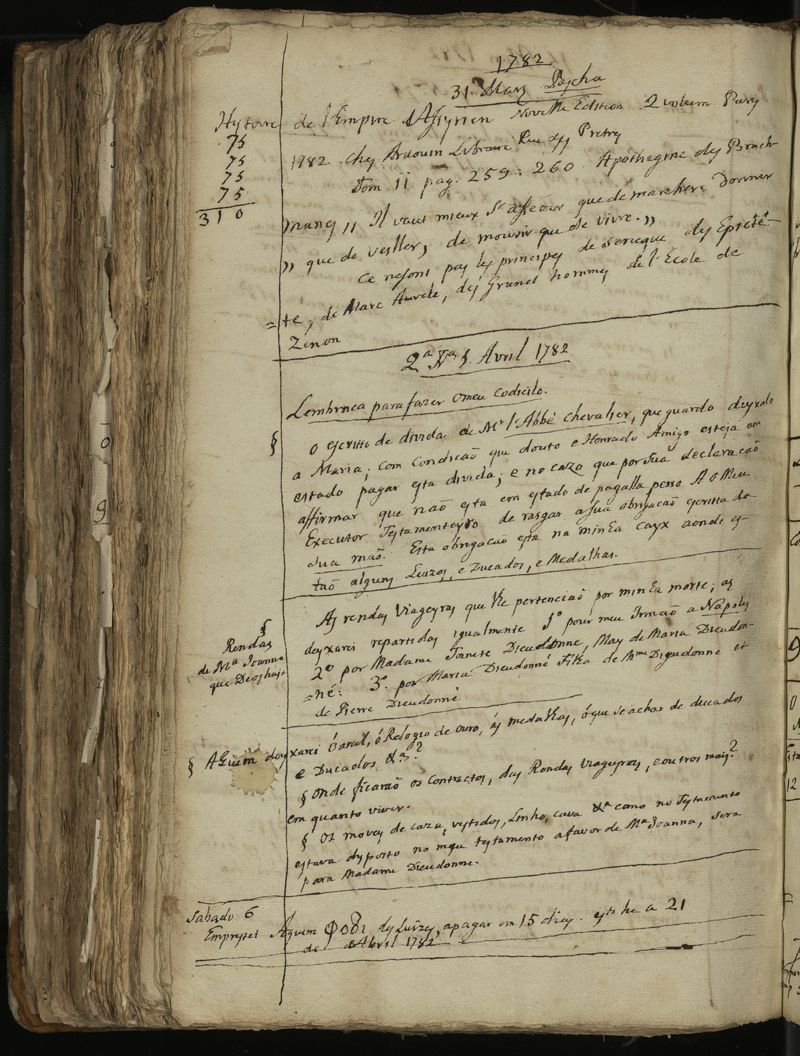 1782
31 Mars Pascha
Hystoire de l'Empire d'Assyrien Novelle Edition 2 volum. Pary
75
75
75
75
310
1782. Chez Ardouin Libraire Rue des Pretres
Tom II pag. 259. 260. Apothegme des Brach-
manes ,, Il vaut mieux s'asseoir que de marcher; Dormir
,, que de veiller, de mourir que de vivre.,,
Ce ne sont pas les principes de Seneque des Epicte-
= te, de Marc Aurele, des Grands hommes de l'Ecole de
Zenon
2ª Fra 5. Avril 1782
Lembrança para fazer o meu Codicilo.
§ O escritto de divida de Mr. l'Abbé Chevalier, que guardo deyxolo
a Maria; com condicaõ que douto e Honrado Amigo esteja em
estado pagar esta divida; e no cazo que por sua declaracaõ
affirmar que naõ esta em estado de pagalla pesso Ao Meu
Executor Testamenteyro de rasgar a sua obrigacaõ escritta da
sua maõ. Esta obrigacaõ esta na minha Cayx aonde es-
taõ alguns Luizes, e Ducados, e Medalhas.
§ As rendas Viageyras que lhe pertencem por minha morte; as
Rendas
de Mª Joanna
que Deos haje
deyxarei repartidas igualmente 1º pour meu Irmaõ a Napoles
2º por Madame Tonete Dieudonne, May de Maria Dieudon-
= né: 3º. por Maria Dieudonné Filha de Mme Dieudonne et
de Pierre Dieudonné
§ A Quem deyxarei o anel, o Relogio de ouro, as medalhas, o que se achar de ducados
e Ducados &ª.?
§ Onde ficaraõ os Contractos, das Rendas Viageyras, e outros mais?
em quanto viver.
§ Os moveis de caza, vestidos, Linho, cama &ª como no Testamento
estava dysposto no meu testamento a favor de Mª Joanna, sera
para Madame Dieudonne.
Sabado 6
Emprestei
de Luizes, a pagar em 15 dias. isto he a 21
de Abril 1782